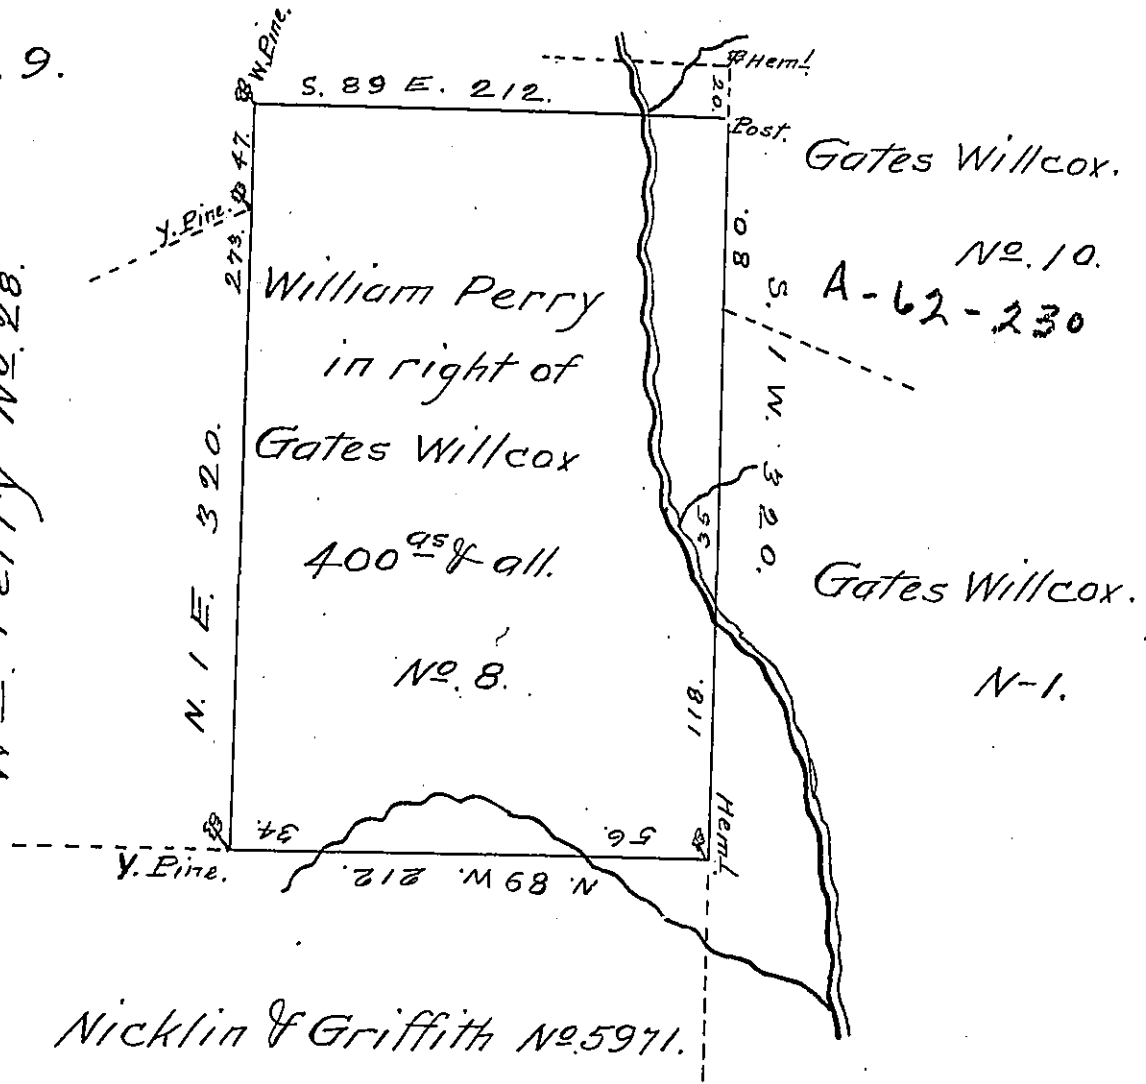 9.
W. Pine.
S. 89 E. 212.
Heml.
20.
Post.
Gates Willcox.
No. 10.
A-62-230
47.
Y. Pine.
273.
80.
S. 1 W. 320.
William Perry
in right of
Gates Willcox
400 as & all.
No. 8.
N. 1 E. 320.
Perry No. 28.
35
Gates Willcox.
N-1.
118.
Heml.
34.
56.
Y. Pine.
N. 89 W. 212.
Nicklin & Griffith No. 5971.